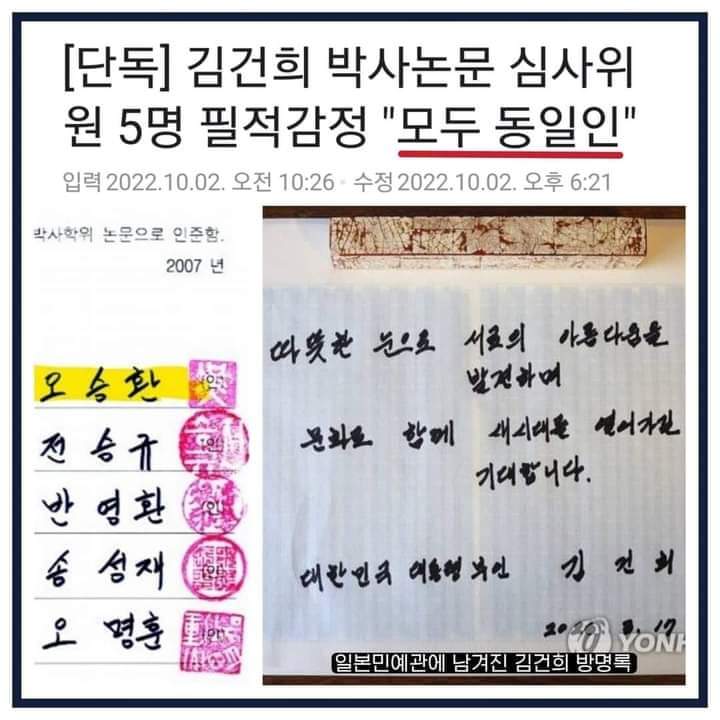 [단독] 김건희 박사논문 심사위
원 5명 필적감정 "모두 동일인"
입력 2022.10.02. 오전 10:26 · 수정 2022.10.02. 오후 6:21
박사학위 논문으로 인준함.
2007 년
오 승 환 (인)
전 승 규 (인)
반 영 환 (인)
송 성 재 (인)
오 명 훈 (인)
따뜻한 눈으로 서로의 아름다움을
발견하며
문화로 함께 새시대를 열어가길
기대합니다.
대한민국 대통령 부인 김 건 희
3. 17
YONH
일본민예관에 남겨진 김건희 방명록